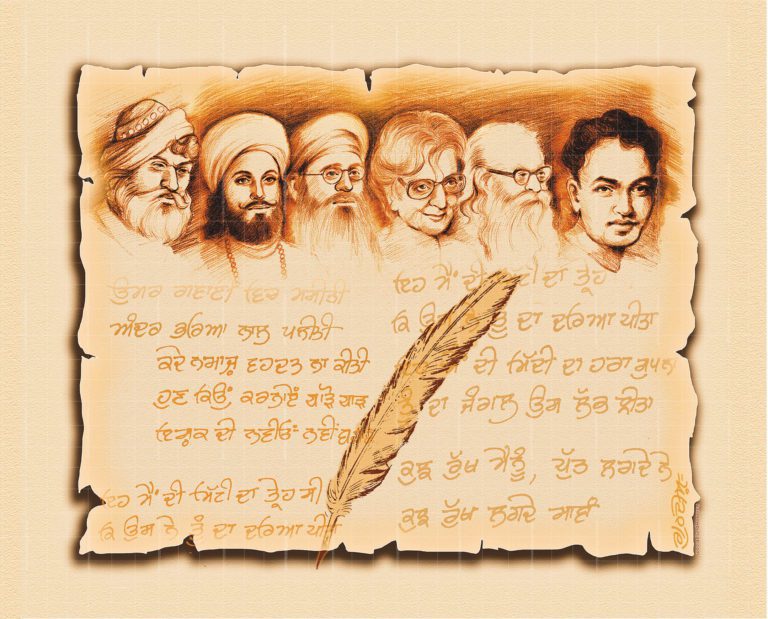 ਉਮਰ ਗਵਾਈ ਵਿਚ ਮਸੀਤੀ
ਅੰਦਰ ਭਰਿਆ ਨਾਲ ਪਲੀਤੀ
ਕਦੇ ਨਮਾਜ਼ ਵਹਦਤ ਨਾ ਕੀਤੀ
ਹੁਣ ਕਿਉਂ ਕਰਨਾਏਂ ਧਾੜੋ ਧਾੜ
ਇਸ਼ਕ ਦੀ ਨਵੀਓਂ ਨਵੀਂ
ਇਹ ਮੈਂ ਦੀ ਮਿੱਟੀ ਦਾ ਤ੍ਰੇਹ ਸੀ
ਕਿ ਉਸ ਨੇ ਤੂੰ ਦਾ ਦਰਿਆ ਪੀਤਾ
ਇਹ ਮੈਂ ਦੀ ਮਿੱਟੀ ਦਾ ਤ੍ਰੇਹ
ਕਿ ਉਸ ਤੂੰ ਦਾ ਦਰਿਆ ਪੀਤਾ
ਦੀ ਮਿੱਟੀ ਦਾ ਹਰਾ ਸੁਪਨਾ
ਤੂੰ ਦਾ ਜੰਗਲ ਉਸ ਲੱਭ ਲੀਤਾ
ਕੁਝ ਰੁੱਖ ਮੈਨੂੰ, ਪੁੱਤ ਲਗਦੇ ਨੇ
ਕੁਝ ਰੁੱਖ ਲਗਦੇ ਮਾਵਾਂ